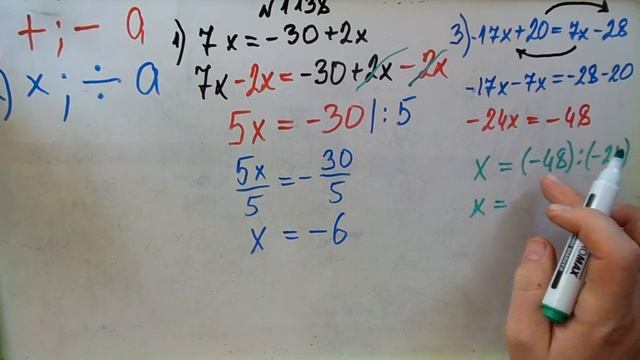 + ; - a
x ; ÷ a
N 1138
1) 7x = -30 + 2x
7x - 2x = -30 + 2x - 2x
5x = -30 | : 5
5x/5 = - 30/5
x = -6
3) -17x + 20 = 7x - 28
-17x - 7x = -28 - 20
-24x = -48
x = (-48) : (-24)
x =